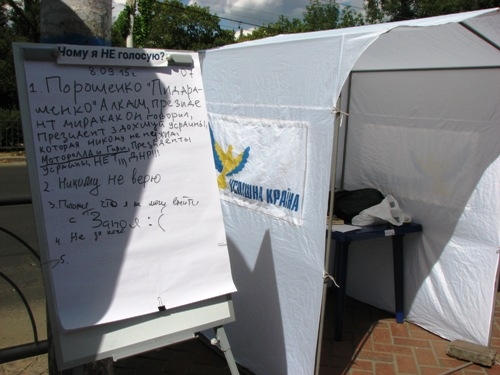 Чому я НЕ голосую?
8.09.15г. 07
1. Порошенко "Пидра-
шенко" Алкаш, президе
нт миракак он говорил,
Президент здохшей Украины,
которая никому не нужна!
Моторолла и Гиви, Президенты
Украины, НЕ !!! ДНР!!!
2. Никому не верю
3. что я не могу выйти
с Запоя :(
4. Не до
5.
УСПІШНА КРАЇНА